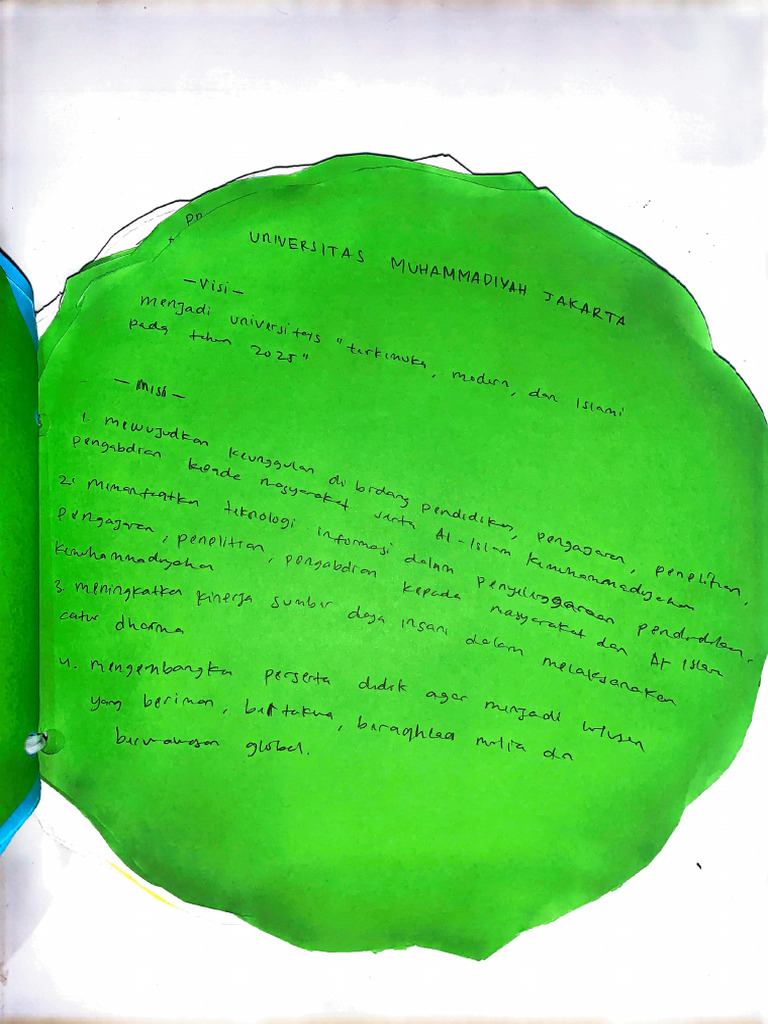 pn
UNIVERSITAS MUHAMMADIYAH JAKARTA
- Visi -
menjadi universitas "terkemuka, modern, dan Islami
pada tahun 2025"
- Misi -
1. mewujudkan keunggulan di bidang pendidikan, pengajaran, penelitian,
pengabdian kepada masyarakat serta Al-Islam kemuhammadiyahan
2. memanfaatkan teknologi informasi dalam penyelenggaraan pendidikan,
pengajaran, penelitian, pengabdian kepada masyarakat dan Al Islam
kemuhammadiyahan
3. meningkatkan kinerja sumber daya insani dalam melaksanakan
catur dharma
4. mengembangka perserta didik agar menjadi lulusan
yang beriman, bertakwa, beraqhlaq mulia dan
berwawasan global.